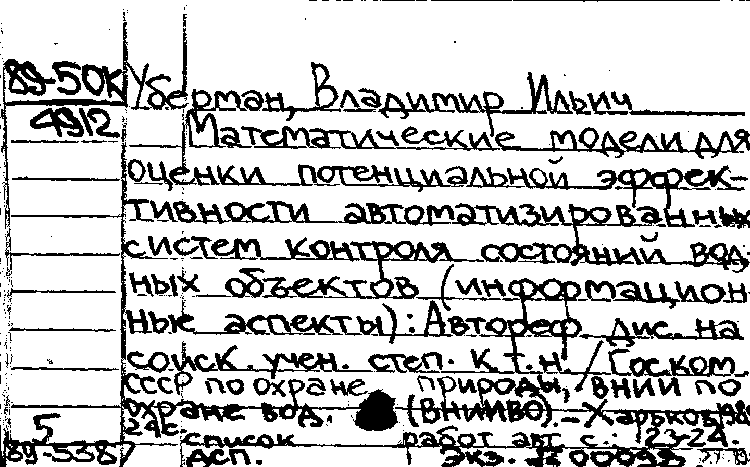 89-50к
4912
Уберман, Владимир Ильич
Математические модели для
оценки потенциальной эффек-
тивности автоматизированных
систем контроля состояний вод-
ных объектов (информацион-
ные аспекты): Автореф. дис. на
соиск. учен. степ. к.т.н. / Гос.ком.
СССР по охране природы, ВНИИ по
охране вод. (ВНИИВО). - Харьков, 198
24с.
5
список работ авт. с.: 23-24.
89-5387
ДСП. Экз. № 00098